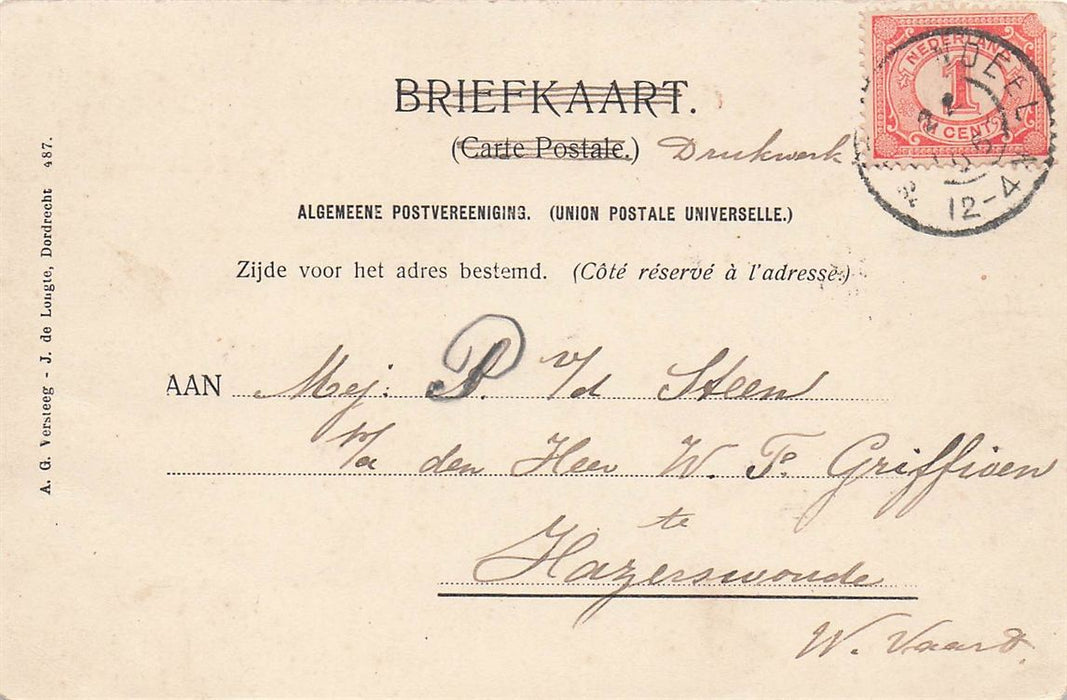 NEDERLAND
1
CENT
12-4
BRIEFKAART.
(Carte Postale.) Drukwerk
ALGEMEENE POSTVEREENIGING. (UNION POSTALE UNIVERSELLE.)
Zijde voor het adres bestemd. (Côté réservé à l'adresse.)
A. G. Versteeg - J. de Longte, Dordrecht 487.
AAN Mej: P. v/d Steen
p/a den Heer W. Fs. Griffioen
te
Hazerswoude
W. Vaart.